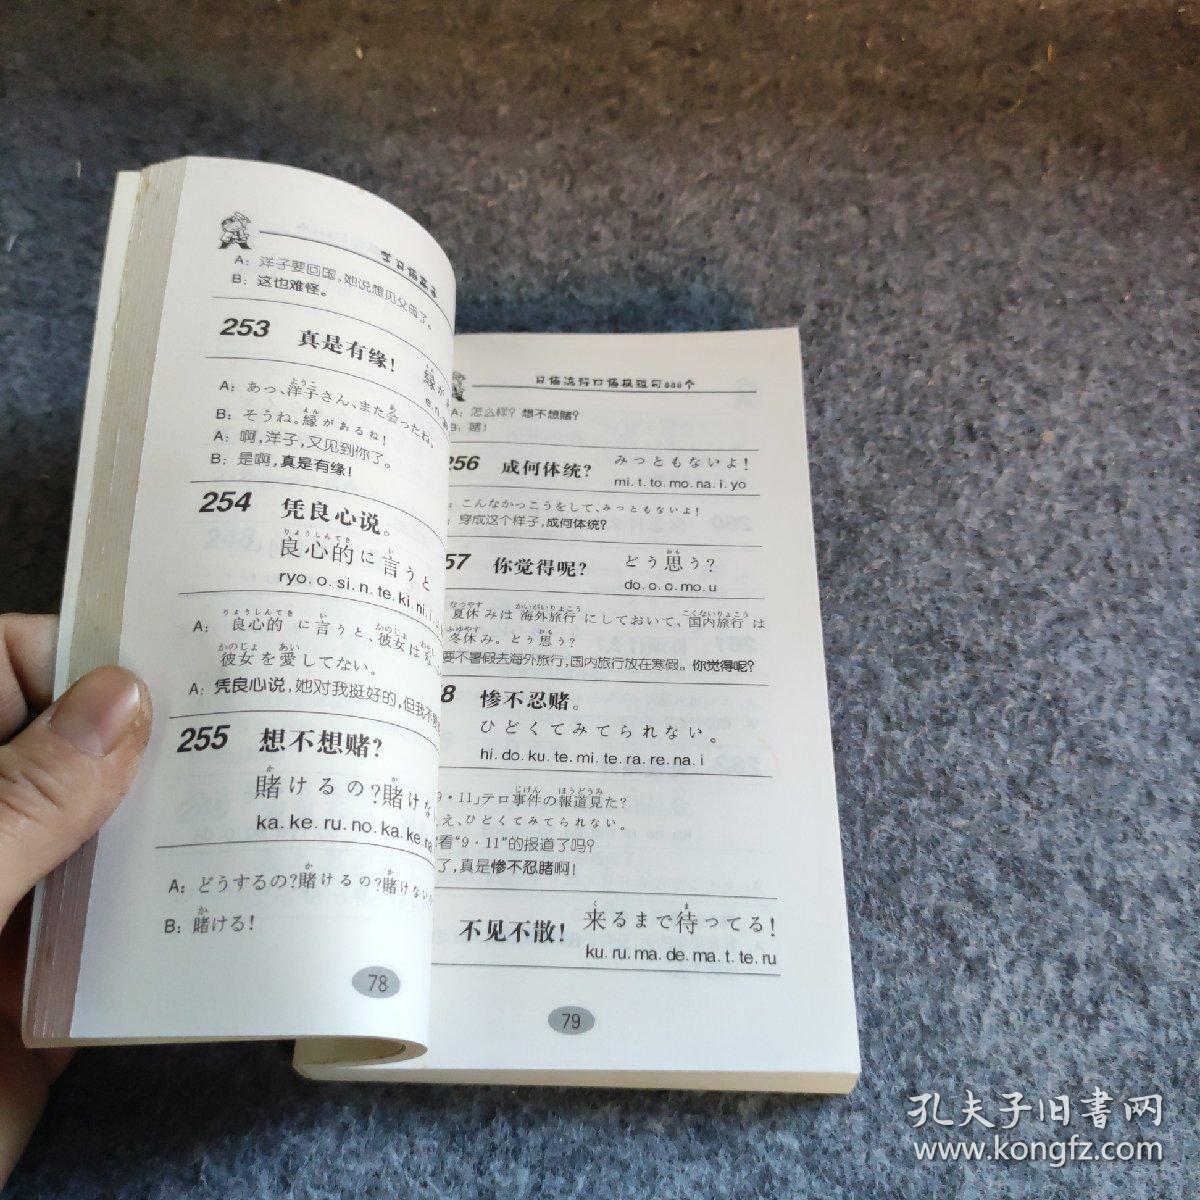 学日语高手
A：洋子要回国，她说想见父母了。
B：这也难怪。
253 真是有缘！
縁が
e.n.
A：あっ、洋子さん、また会ったね。
B：そうね。縁があるね！
A：啊，洋子，又见到你了。
B：是啊，真是有缘！
254 凭良心说。
良心的に言うと
ryo.o.si.n.te.ki.ni.i.u
A：良心的に言うと、彼女は
彼女を愛してない。
A：凭良心说，她对我挺好的，但我不
255 想不想赌？
賭けるの？賭けな
ka.ke.ru.no.ka.ke.na
A：どうするの？賭けるの？賭けない
B：賭ける！
78
日语流行口语极短句888个
A：怎么样？想不想赌？
B：赌！
256 成何体统？ みっともないよ！
mi.t.to.mo.na.i.yo
：こんなかっこうをして、みっともないよ！
：穿成这个样子，成何体统？
57 你觉得呢？ どう思う？
do.o.o.mo.u
夏休みは海外旅行にしておいて、国内旅行は
冬休み。どう思う？
要不暑假去海外旅行，国内旅行放在寒假。你觉得呢？
8 惨不忍赌。
ひどくてみてられない。
hi.do.ku.te.mi.te.ra.re.na.i
9・11」テロ事件の報道見た？
え、ひどくてみてられない。
看“9・11”的报道了吗？
了，真是惨不忍睹啊！
不见不散！ 来るまで待ってる！
ku.ru.ma.de.ma.t.te.ru
79
孔夫子旧書网
www.kongfz.com